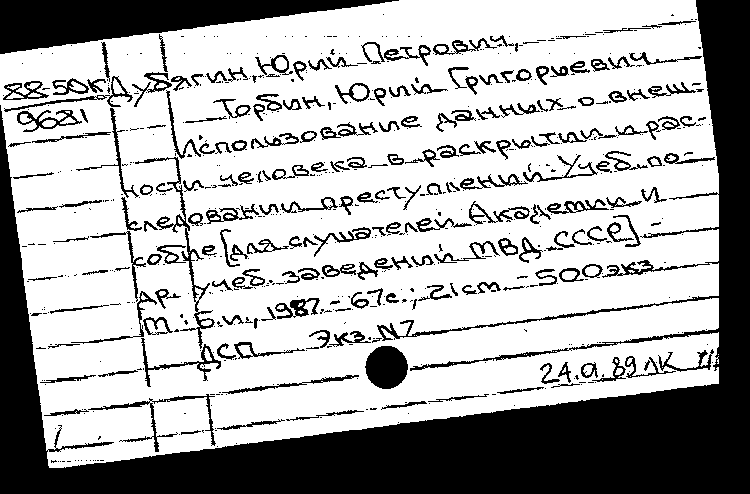 88-50К Дубягин, Юрий Петрович,
9681 Торбин, Юрий Григорьевич.
Использование данных о внеш-
ности человека в раскрытии и рас-
следовании преступлений: Учеб. по-
собие [для слушателей Академии и
др. учеб. заведений МВД СССР]. -
М.: Б.и., 1987. - 67с.; 21см. - 500экз.
ДСП Экз. N7
89 ЛК